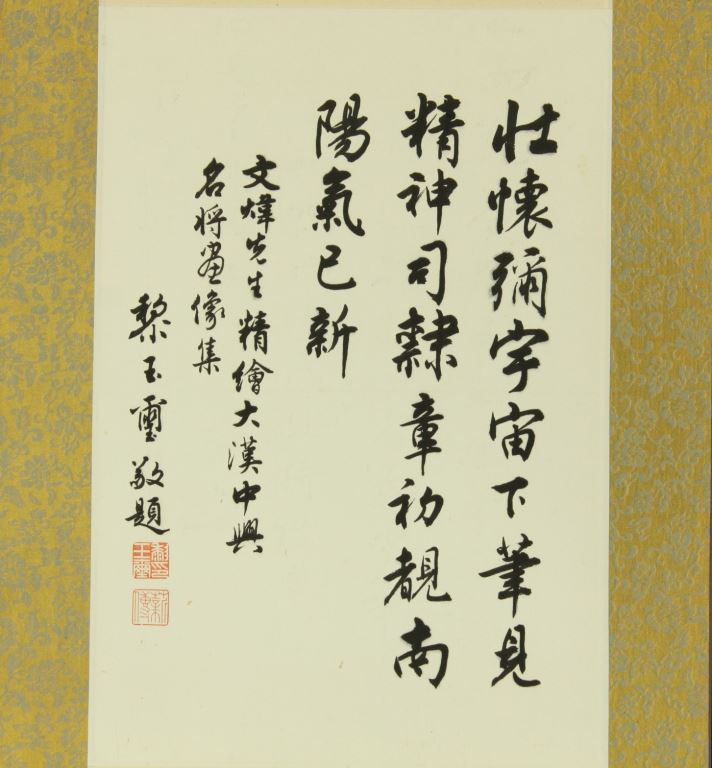 壯懷彌宇宙下筆見
精神司隸章初覩南
陽氣已新
文煒先生精繪大漢中興
名將畫像集
黎玉璽敬題